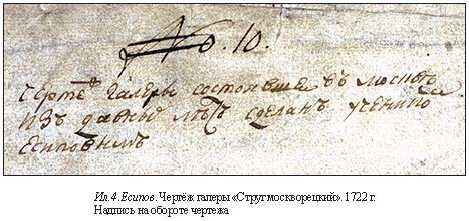 No. 10.
Чертеꙵ галеры состоѧвшеи въ москвѣ
изъ давны лѣтъ сделанъ ученико
Есиповымъ
Ил.4. Есипов. Чертёж галеры «Струг москворецкий». 1722 г.
Надпись на обороте чертежа